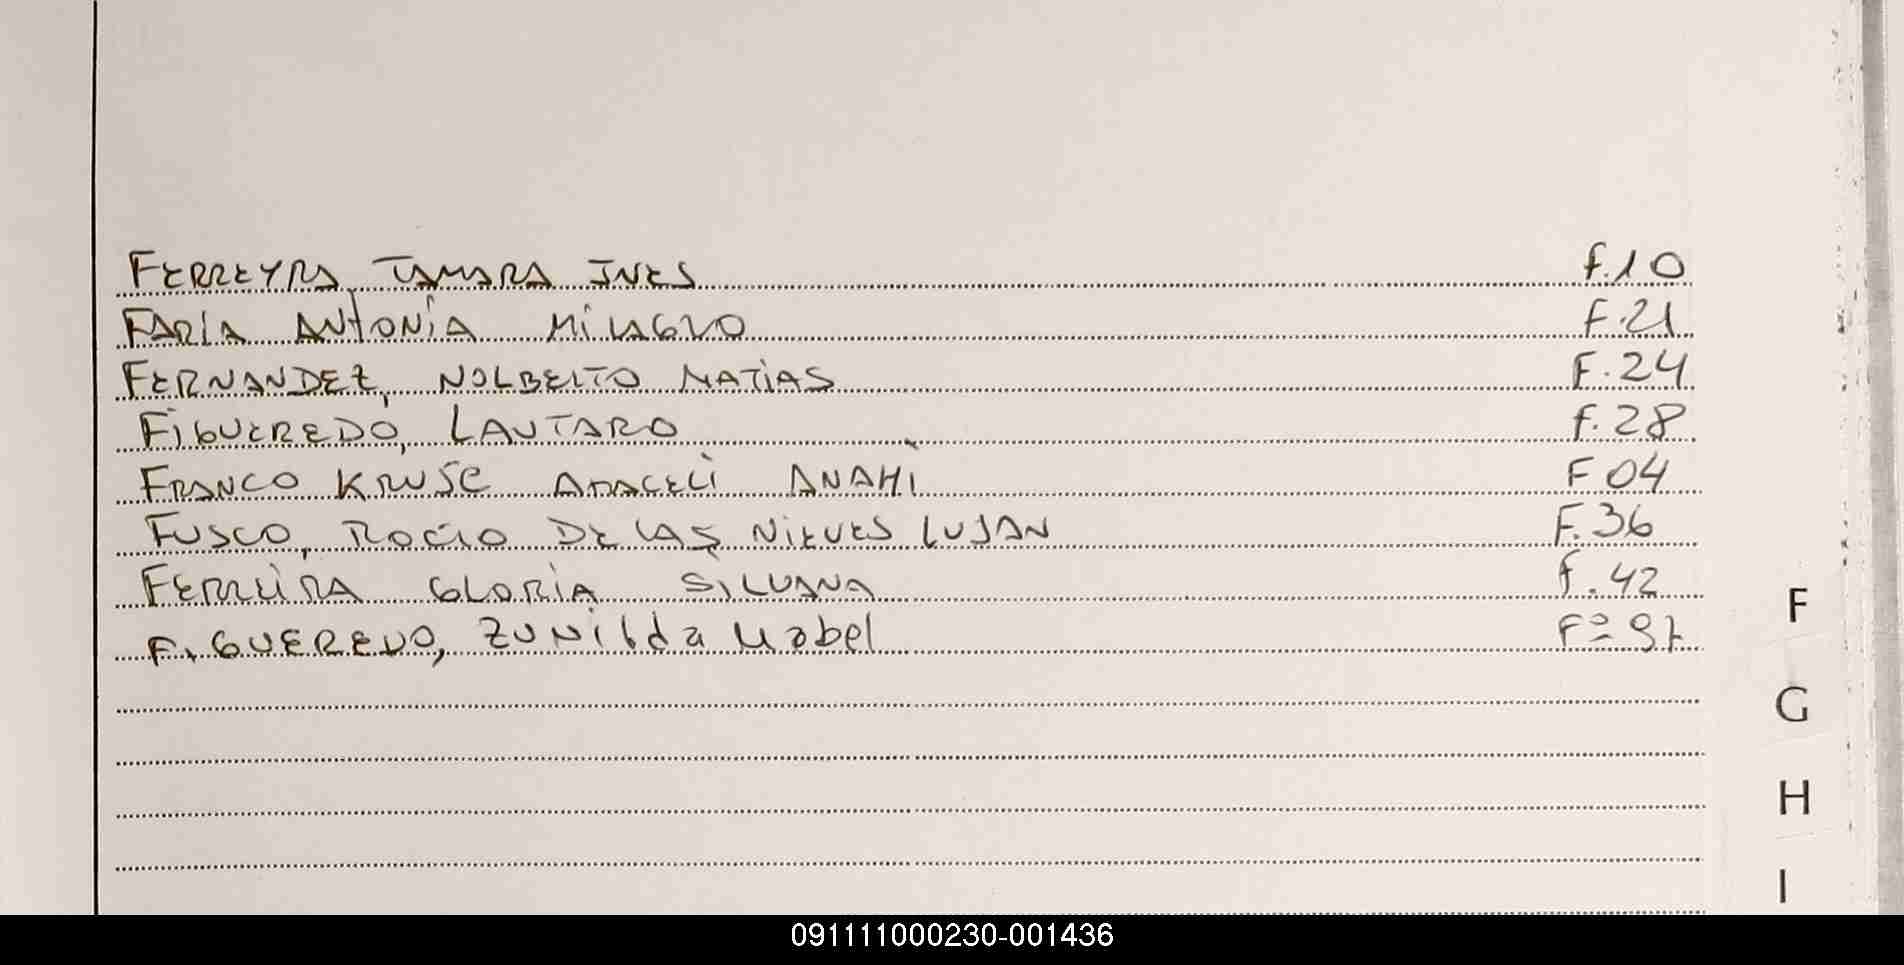 FERREYRA, TAMARA INES f.10
FARIA ANTONIA MILAGRO F.21
FERNANDEZ, NOLBERTO MATIAS F.24
FIGUEREDO, LAUTARO f.28
FRANCO KRUSE ARACELI ANAHI F 04
FUSCO, ROCIO DE LAS NIEVES LUJAN F.36
FERREIRA GLORIA SILVANA f.42
FIGUEREDO, ZUNilda Mabel Fº
F
G
H
I
091111000230-001436